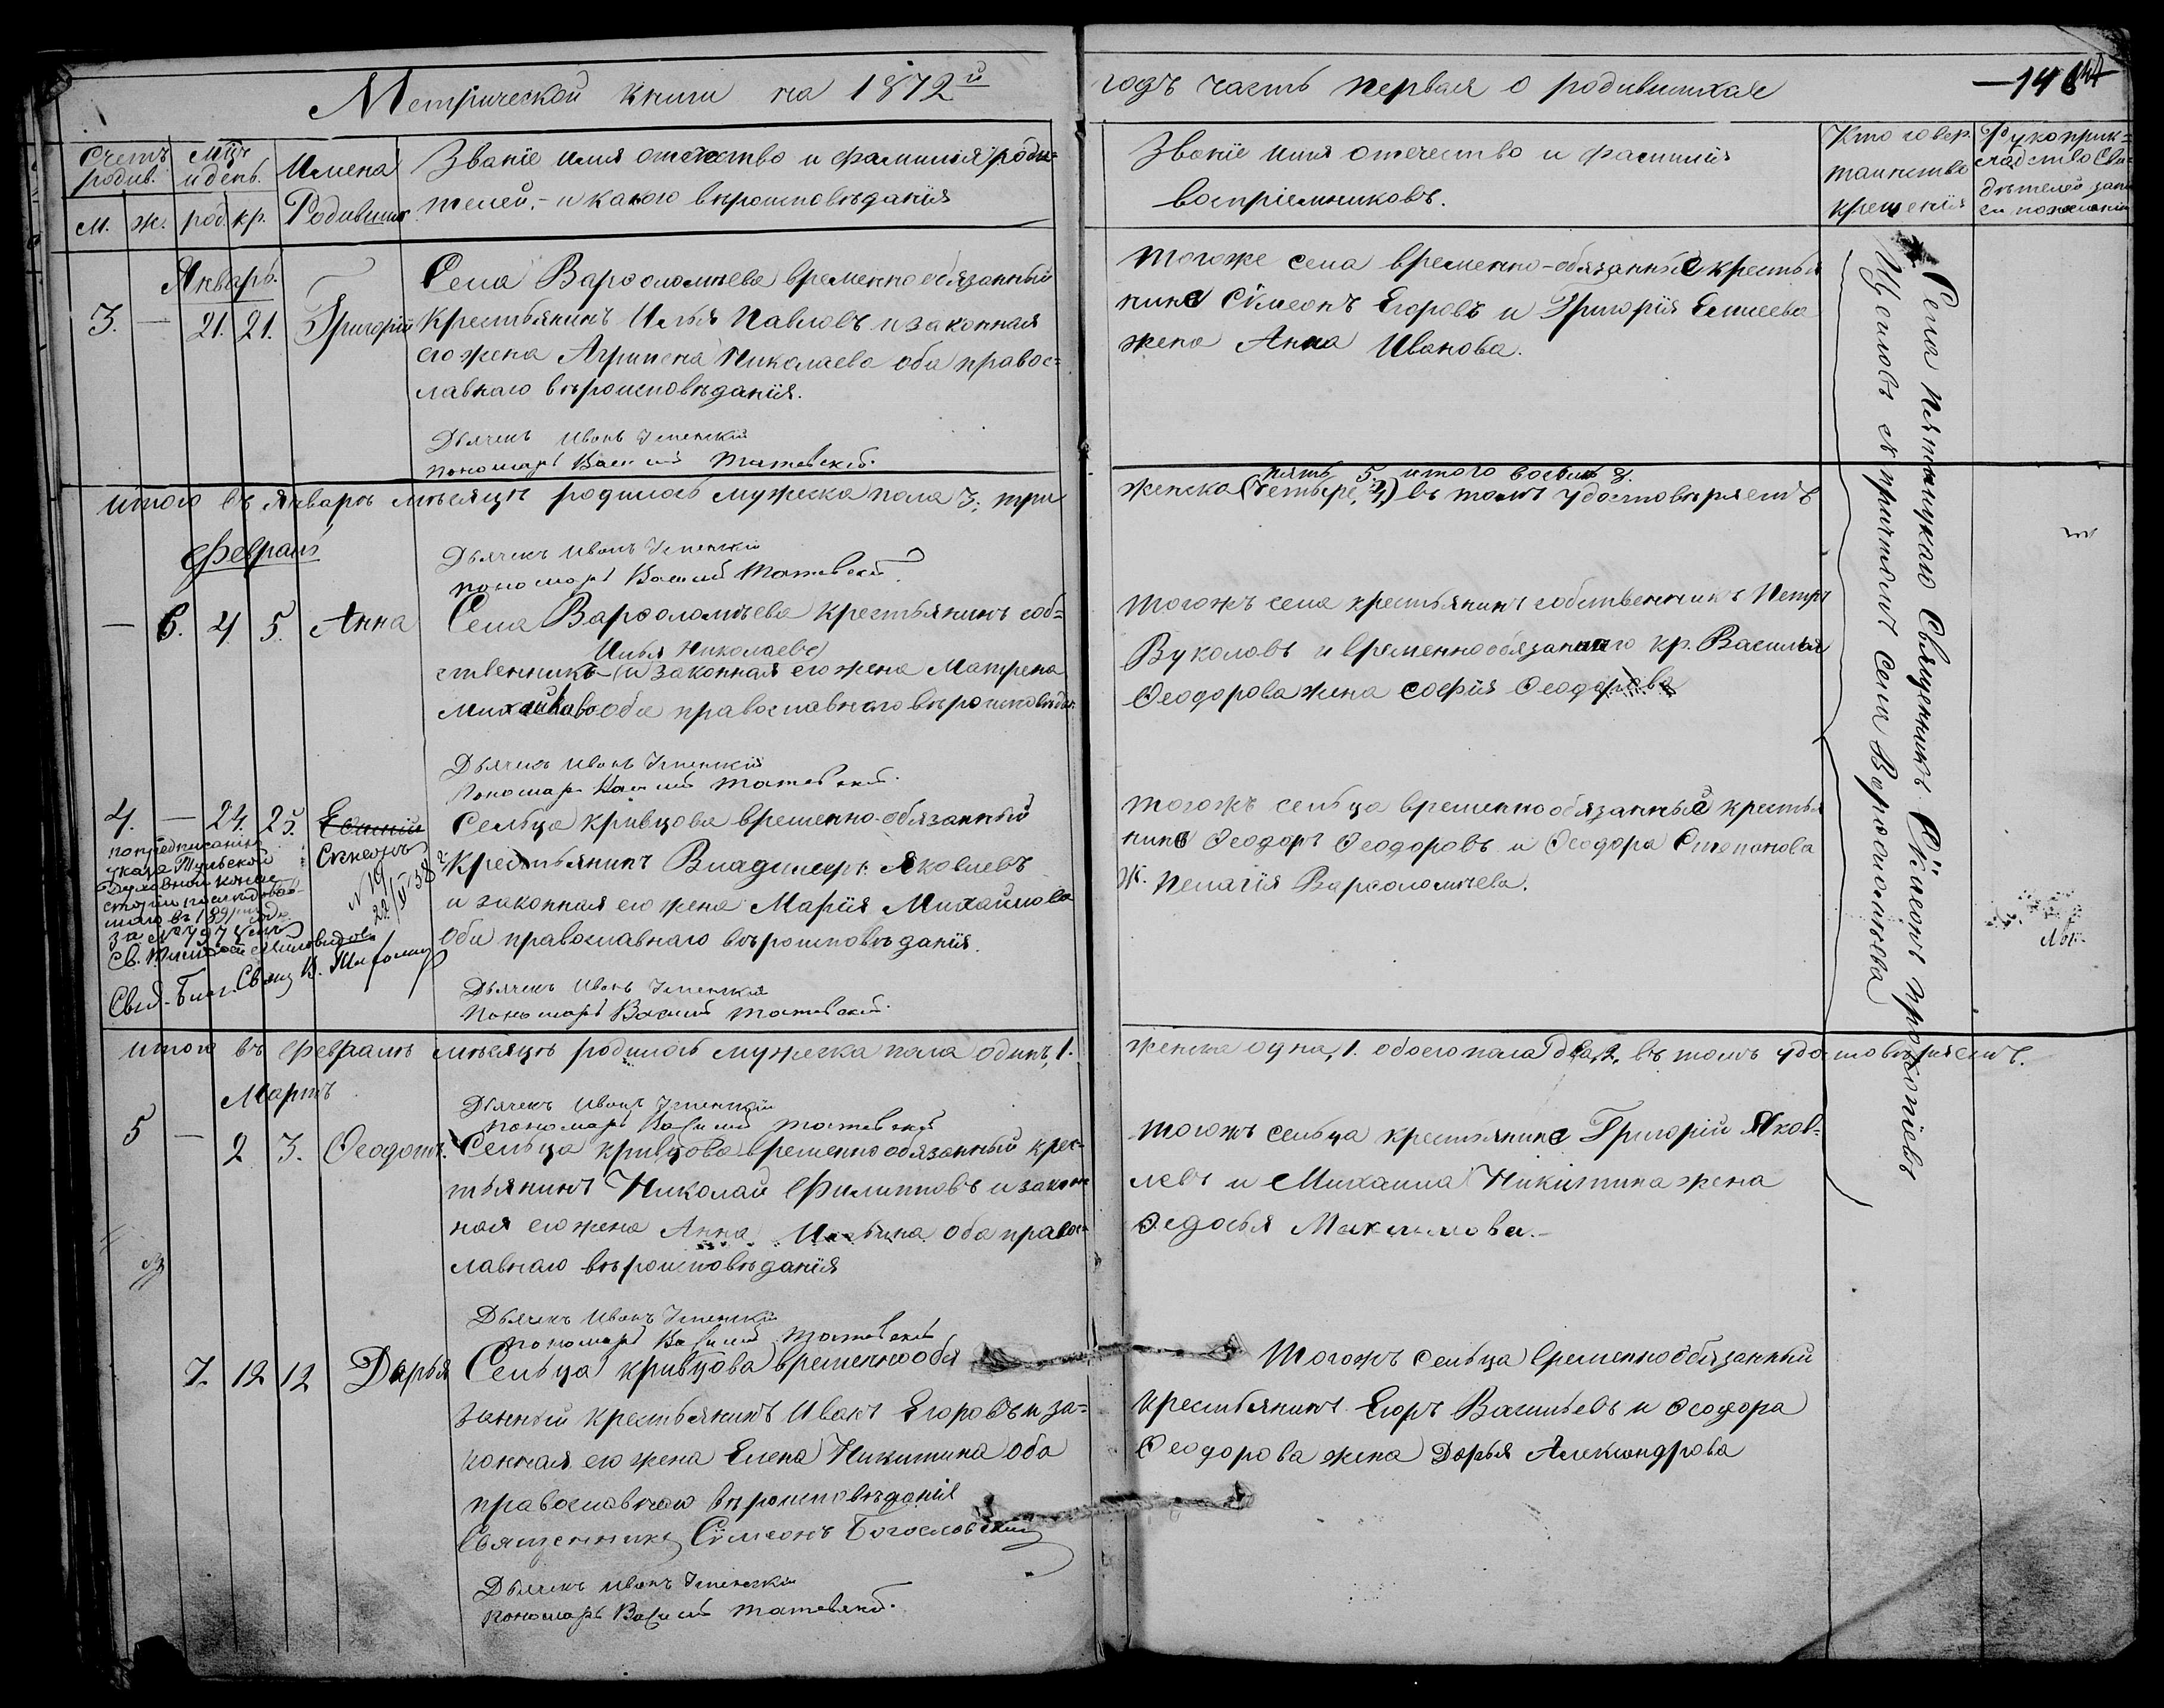 Метрической книги на 1872й
годъ часть первая о родившихся
Счетъ родив.
Мцъ и день.
Имена Родивших
Званіе имя отечество и фамилія роди=
телей, - и какого вѣроисповѣданія
М. ж. род. кр.
Званіе имя отечество и фамилія
воспріемниковъ.
Кто совер.
таинство
крещенія
Рукоприк=
ладство сви=
дѣтелей запи
си по желанію
Январь.
3. — 21. 21. Григорій
Села Варѳоломѣева временно обязанный
крестьянинъ Илья Павловъ и законная
его жена Агрипена Николаева оба правос=
лавнаго вѣроисповѣданія.
Дьячекъ Иванъ Успенскій
пономарь Василій
Тогоже села временно-обязанные крестья
нине Сѵмеонъ Егоровъ и Григорія Елисеева
жена Анна Иванова.
итого въ Январѣ мѣсяцѣ родилось мужеска пола 3, три
пять 5 итого восемь 8.
женска (четыре, 4,) въ томъ удостовѣряемъ
Дьячекъ Иванъ Успенскій
пономарь Василій
Февраль
— 6. 4 5. Анна
Села Варѳоломѣева крестьянинъ соб=
Илья Николаевъ
ственникъ (и законная его жена Матрена
Михайлова оба православнаго вѣроисповѣдан.
Дьячекъ Иванъ Успенскій
Пономарь Василій
Тогожъ села крестьянинъ собственникъ Петръ
Вуколовъ и временнообязаннаго кр. Василья
Ѳеодорова жена Софія Ѳеодорова
4. — 24. 25.
Симеонъ
по предписанію
указа Тульской
Духовной конси
сторіи послѣдовав
шаго въ 1891 году
за №
Сельца Кривцова временно-обязанный
крестьянинъ Владимиръ Яковлевъ
и законная его жена Марія Михайлова
оби православнаго вѣроисповѣданія.
Дьячекъ Иванъ Успенскій
Пономарь Василій
Тогожъ сельца временно обязанные крестья
нине Ѳеодоръ Ѳеодоровъ и Ѳеодора Степанова
Ж. Пелагія Варѳоломѣева.
итого въ Февралѣ мѣсяцѣ родилось мужеска пола одинъ, 1.
женска одна, 1. обоего пола два, 2, въ томъ удостовѣряемъ.
Дьячекъ Иванъ Успенскій
пономарь Василій
Мартъ
5 — 2 3. Ѳеодотъ.
Сельца Кривцова временно обязанный крес=
тьянинъ Николай Филипповъ и закон
ная его жена Анна Ильина оба правос=
лавнаго вѣроисповѣданія
Дьячекъ Иванъ Успенскій
пономарь Василій
Тогожъ сельца крестьянине Григорій Яков=
левъ и Михаила Никитина жена
Ѳедосья Максимова.
7. 12 12 Дарья
Сельца Кривцова временнообя
занный крестьянинъ Иванъ Егоровъ и за=
конная его жена Елена Никитина оба
православнаго вѣроисповѣданія
Священникъ Сѵмеонъ Богословскій
Дьячекъ Иванъ Успенскій
пономарь Василій
Тогожъ сельца временнообязанный
крестьянинъ Егоръ Васильевъ и Ѳеодора
Ѳеодорова жена Дарья Александрова
Села Пятницкаго Священникъ Сѵмеонъ Прокопіевъ
съ причтомъ села Варѳоломѣева